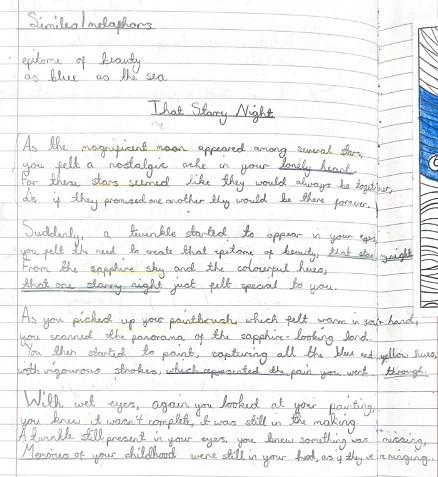 Similes/metaphors
epitome of beauty
as blue as the sea
That Starry Night
As the magnificent moon appeared among several stars,
you felt a nostalgic ache in your lonely heart.
For these stars seemed like they would always be together,
as if they promised one another they would be there forever.
Suddenly, a twinkle started to appear in your eyes,
you felt the need to create that epitome of beauty, that starry night
From the sapphire sky and the colourful hues,
that one starry night just felt special to you.
As you picked up your paintbrush which felt warm in your hand,
you scanned the panorama of the sapphire-looking land.
You then started to paint, capturing all the blue and yellow hues,
with vigourous strokes, which represented the pain you went through.
With wet eyes, again you looked at your painting,
you knew it wasn't complete, it was still in the making.
A twinkle still present in your eyes, you knew something was missing,
Memories of your childhood were still in your head, as if they were ringing.